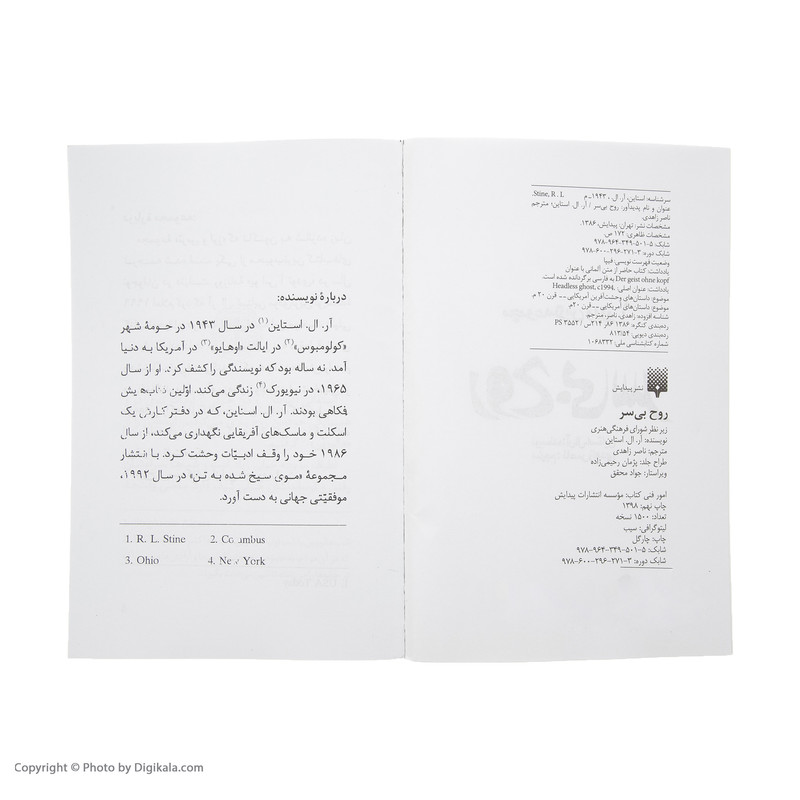 سرشناسه: استاین، آر. ال.، ۱۹۴۳-م Stine, R. L.
عنوان و نام پدیدآور: روح بی‌سر / آر. ال. استاین؛ مترجم
ناصر زاهدی.
مشخصات نشر: تهران: پیدایش، ۱۳۸۶.
مشخصات ظاهری: ۱۷۲ ص.
شابک ۵-۵۰۱-۳۴۹-۹۶۴-۹۷۸
شابک دوره: ۳-۲۷۱-۲۹۶-۶۰۰-۹۷۸
وضعیت فهرست نویسی: فیپا
یادداشت: کتاب حاضر از متن آلمانی با عنوان
Der geist ohne kopf به فارسی برگردانده شده است.
یادداشت: عنوان اصلی: Headless ghost, c1994.
موضوع: داستان‌های وحشت‌آفرین آمریکایی ــ قرن ۲۰ م.
موضوع: داستان‌های آمریکایی ــ قرن ۲۰م.
شناسه افزوده: زاهدی، ناصر، مترجم.
رده‌بندی کنگره: ۱۳۸۶ ۸۶ر ۲۱۴س / PS 3552
رده‌بندی دیویی: ۸۱۳/۵۴
شماره کتابشناسی ملی: ۱۰۶۸۳۳۲
نشر پیدایش
روح بی‌سر
زیر نظر شورای فرهنگی‌هنری
نویسنده: آر. ال. استاین
مترجم: ناصر زاهدی
طراح جلد: پژمان رحیمی‌زاده
ویراستار: جواد محقق
امور فنی کتاب: مؤسسه انتشارات پیدایش
چاپ نهم: ۱۳۹۸
تعداد: ۱۵۰۰ نسخه
لیتوگرافی: سیب
چاپ: چارگل
شابک: ۵-۵۰۱-۳۴۹-۹۶۴-۹۷۸
شابک دوره: ۳-۲۷۱-۲۹۶-۶۰۰-۹۷۸
دربارهٔ نویسنده:
آر. ال. استاین(۱) در سال ۱۹۴۳ در حومهٔ شهر
«کولومبوس»(۲) در ایالت «اوهایو»(۳) در آمریکا به دنیا
آمد. نه ساله بود که نویسندگی را کشف کرد. او از سال
۱۹۶۵، در نیویورک(۴) زندگی می‌کند. اوّلین کتاب‌هایش
فکاهی بودند. آر. ال. استاین، که در دفتر کارش یک
اسکلت و ماسک‌های آفریقایی نگهداری می‌کند، از سال
۱۹۸۶ خود را وقف ادبیّات وحشت کرد. با انتشار
مجموعهٔ «موی سیخ شده به تن» در سال ۱۹۹۲،
موفقیّتی جهانی به دست آورد.
1. R. L. Stine 2. Columbus
3. Ohio 4. New York
Copyright © Photo by Digikala.com